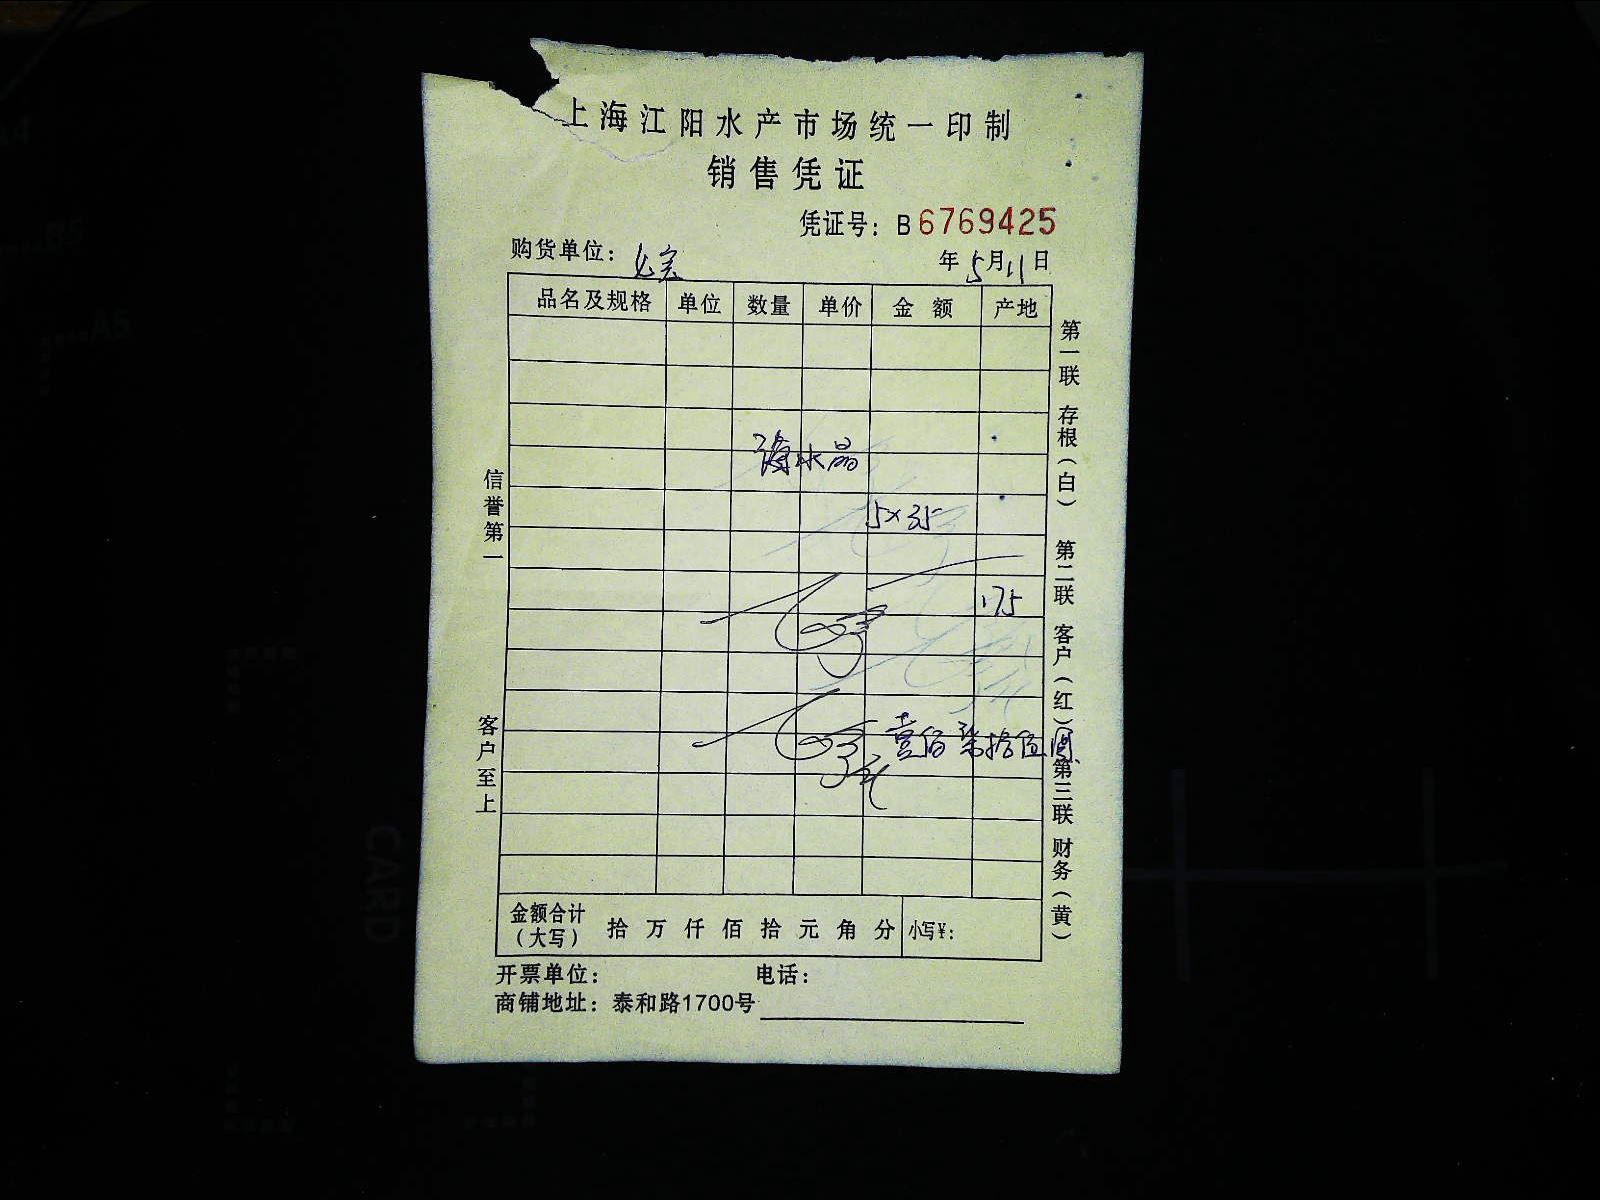 上海江阳水产市场统一印制
销售凭证
凭证号：B 6769425
购货单位： 年 5月11日
品名及规格 单位 数量 单价 金额 产地
水晶
5×35
175
壹佰柒拾伍圆
金额合计（大写） 拾 万 仟 佰 拾 元 角 分 小写¥：
开票单位： 电话：
商铺地址：泰和路1700号
信誉第一
客户至上
第一联 存根（白） 第二联 客户（红） 第三联 财务（黄）